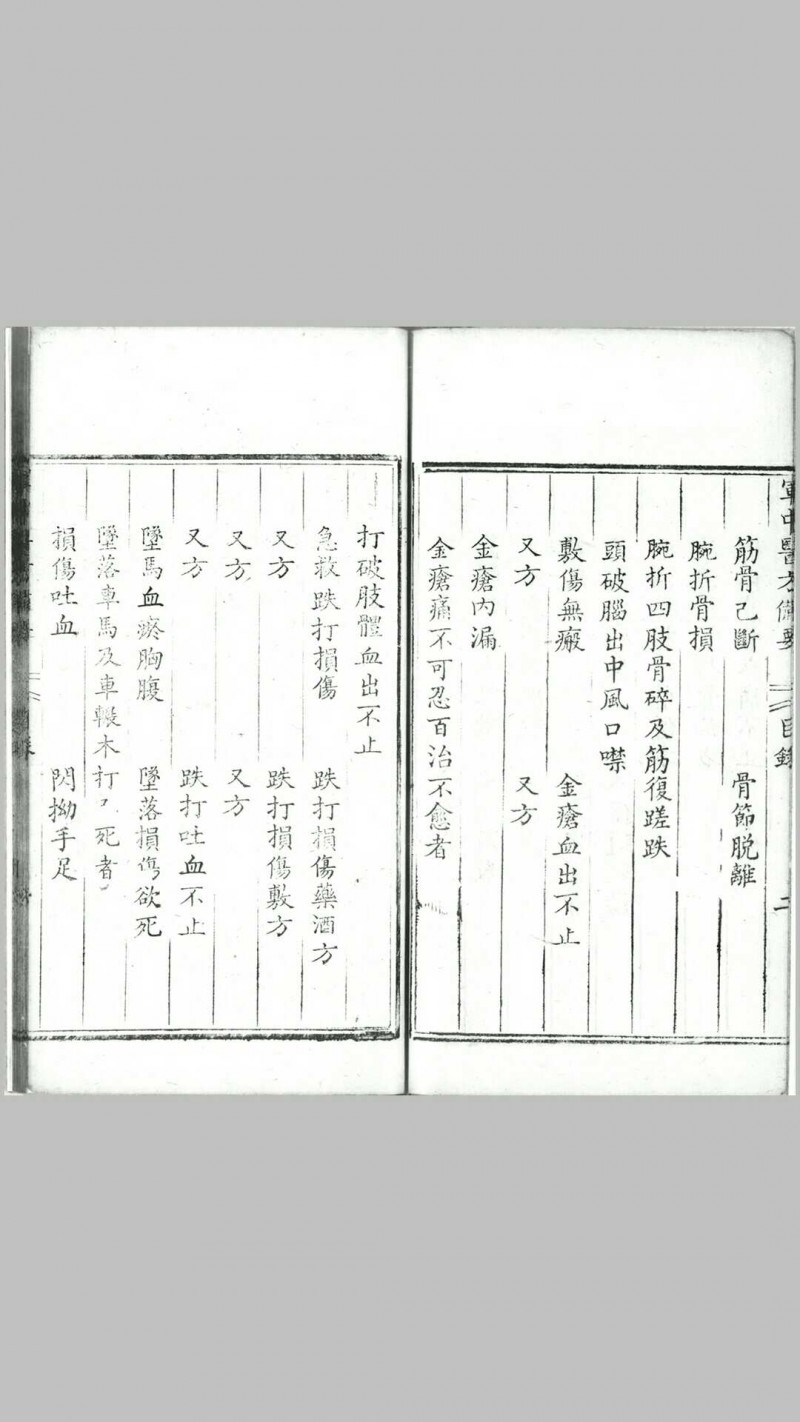 軍中醫方備要 目錄 二
筋骨已斷 骨節脫離
腕折骨損
腕折四肢骨碎及筋復蹉跌
頭破腦出中風口噤
敷傷無瘢 金瘡血出不止
又方 又方
金瘡內漏
金瘡痛不可忍百治不愈者
打破肢體血出不止
急救跌打損傷 跌打損傷藥酒方
又方 跌打損傷敷方
又方 又方
又方 跌打吐血不止
墜馬血瘀胸腹 墜落損傷欲死
墜落車馬及車輾木打 死者
損傷吐血 閃拗手足